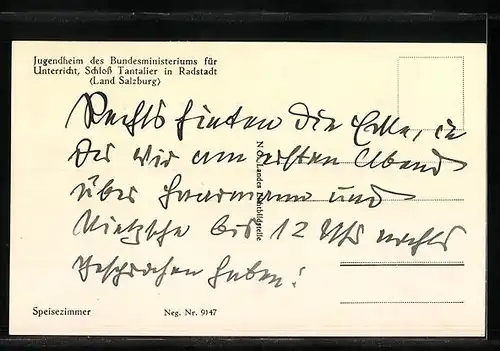 Jugendheim des Bundesministeriums für
Unterricht, Schloß Tantalier in Radstadt
(Land Salzburg)
Rechts hinten die Ecke, in
der wir am ersten Abend
über und
Nietzsche bis 12 Uhr nachts
gesprochen haben!
N. Ö. Landes Lichtbildstelle
Speisezimmer
Neg. Nr. 9147